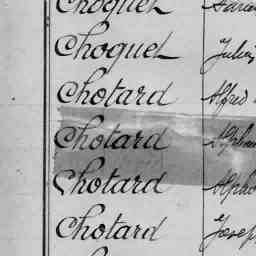 Choquet
Choquet Jules
Chotard Alfred
Chotard Alphon
Chotard Alpho
Chotard Josep